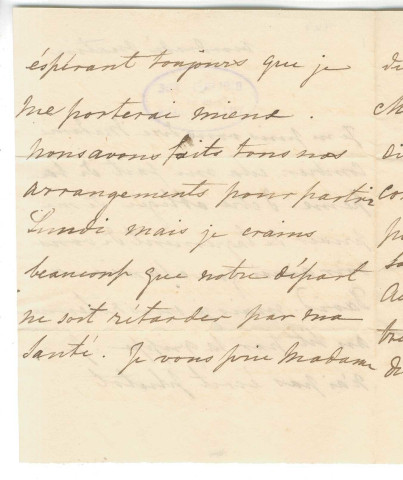 éspérant toujours que je
me porterai mieux.
nous avons faits tous nos
arrangements pour partir
Lundi, mais je crains
beaucoup que notre départ
ne soit rétarder par ma
santé. Je vous prie Madame